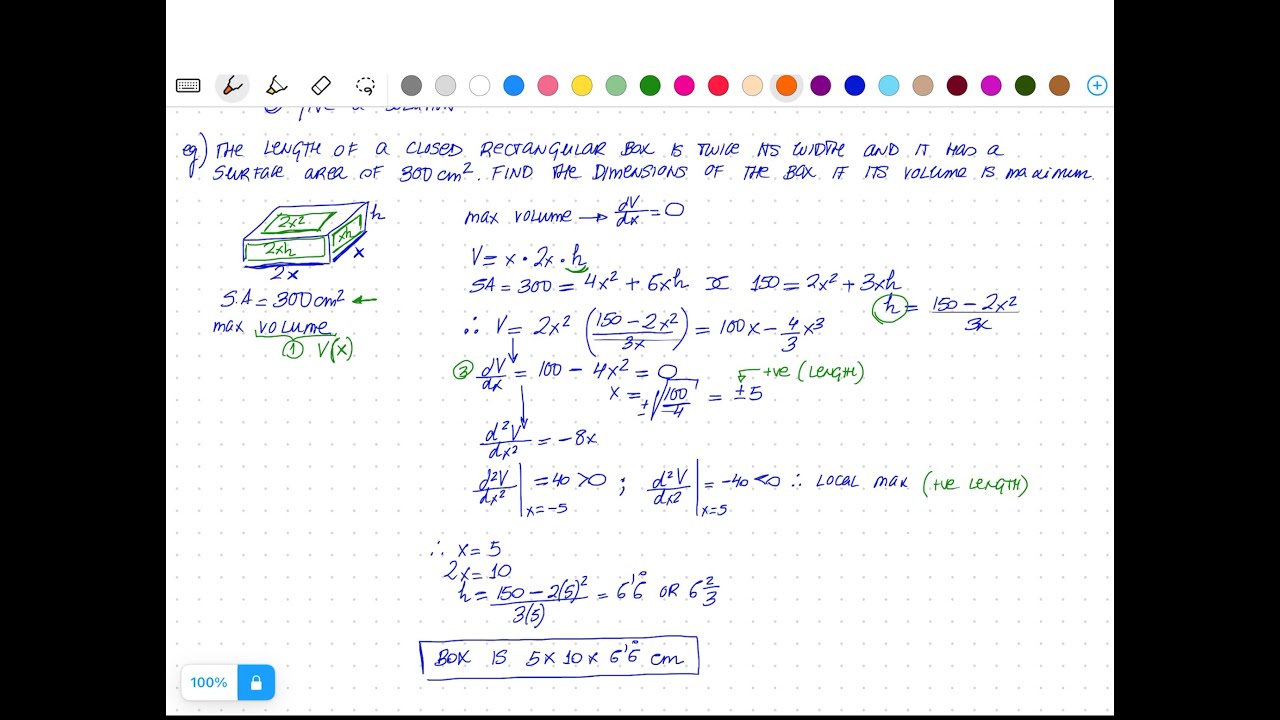 eg) THE LENGTH OF A CLOSED RECTANGULAR BOX IS TWICE ITS WIDTH AND IT HAS A
SURFACE AREA OF 300 cm². FIND THE DIMENSIONS OF THE BOX IF ITS VOLUME IS maximum.
2x²
2xh
xh
h
x
2x
S.A = 300 cm² ←
max volume
① V(x)
max volume → dV/dx = 0
V = x · 2x · h
SA = 300 = 4x² + 6xh 150 = 2x² + 3xh
h = (150 − 2x²)/3x
∴ V = 2x² ((150 − 2x²)/3x) = 100x − 4/3 x³
dV/dx = 100 − 4x² = 0
+ve (LENGTH)
x = ±√(100/−4) = ±5
d²V/dx² = −8x
d²V/dx² | x=−5 = 40 > 0 ; d²V/dx² | x=5 = −40 < 0 ∴ LOCAL max (+ve LENGTH)
∴ x = 5
2x = 10
h = (150 − 2(5)²)/3(5) = 6'6̊ OR 6 2/3
BOX IS 5 x 10 x 6'6̊ cm
100%